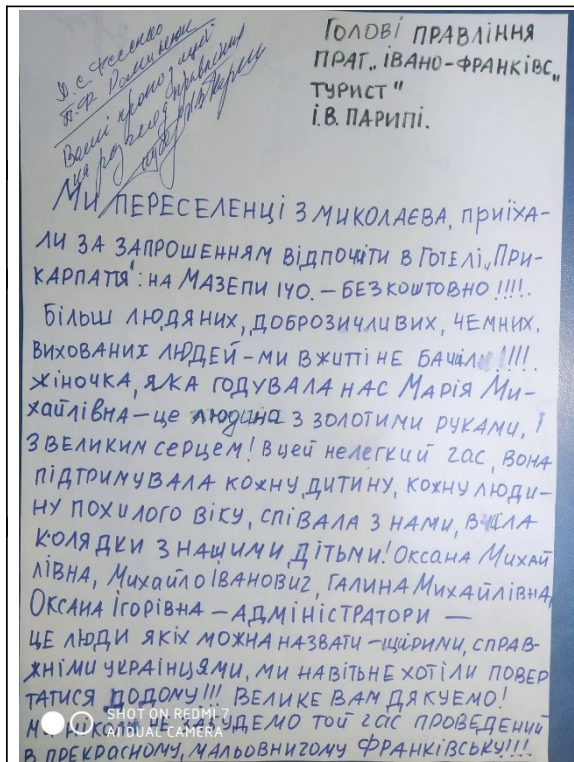 Голові правління
ПРАТ „Івано-Франківс„
турист"
І.В. Парипі.
Ваші пропозиції
Ми переселенці з Миколаєва, приїха-
ли за запрошенням відпочити в готелі „При-
карпаття": на Мазепи 140. – безкоштовно!!!!.
Більш людяних, доброзичливих, чемних,
вихованих людей – ми в житті не бачили!!!!
Жіночка, яка годувала нас Марія Ми-
хайлівна – це людина з золотими руками, і
з великим серцем! В цей нелегкий час, вона
підтримувала кожну дитину, кожну люди-
ну похилого віку, співала з нами, вчила
колядки з нашими дітьми! Оксана Михай
лівна, Михайло Іванович, Галина Михайлівна,
Оксана Ігорівна – адміністратори –
це люди якіх можна назвати – щирими, справ-
жніми українцями, ми навіть не хотіли повер
татися додому!!! Велике Вам дякуємо!
Ми ніколи не забудемо той час проведений
в прекрасному, мальовничому Франківську!!!
SHOT ON REDMI 7
AI DUAL CAMERA